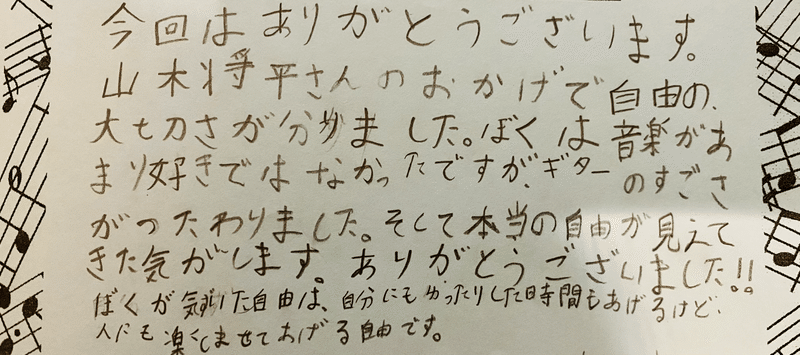 今回はありがとうございます。
山木将平さんのおかげで自由の、
大切さが分かりました。ぼくは音楽があ
まり好きではなかったですが、ギターのすごさ
がつたわりました。そして本当の自由が見えて
きた気がします。ありがとうございました!!
ぼくが気づいた自由は、自分にもゆったりした時間もあげるけど、
人にも楽しませてあげる自由です。